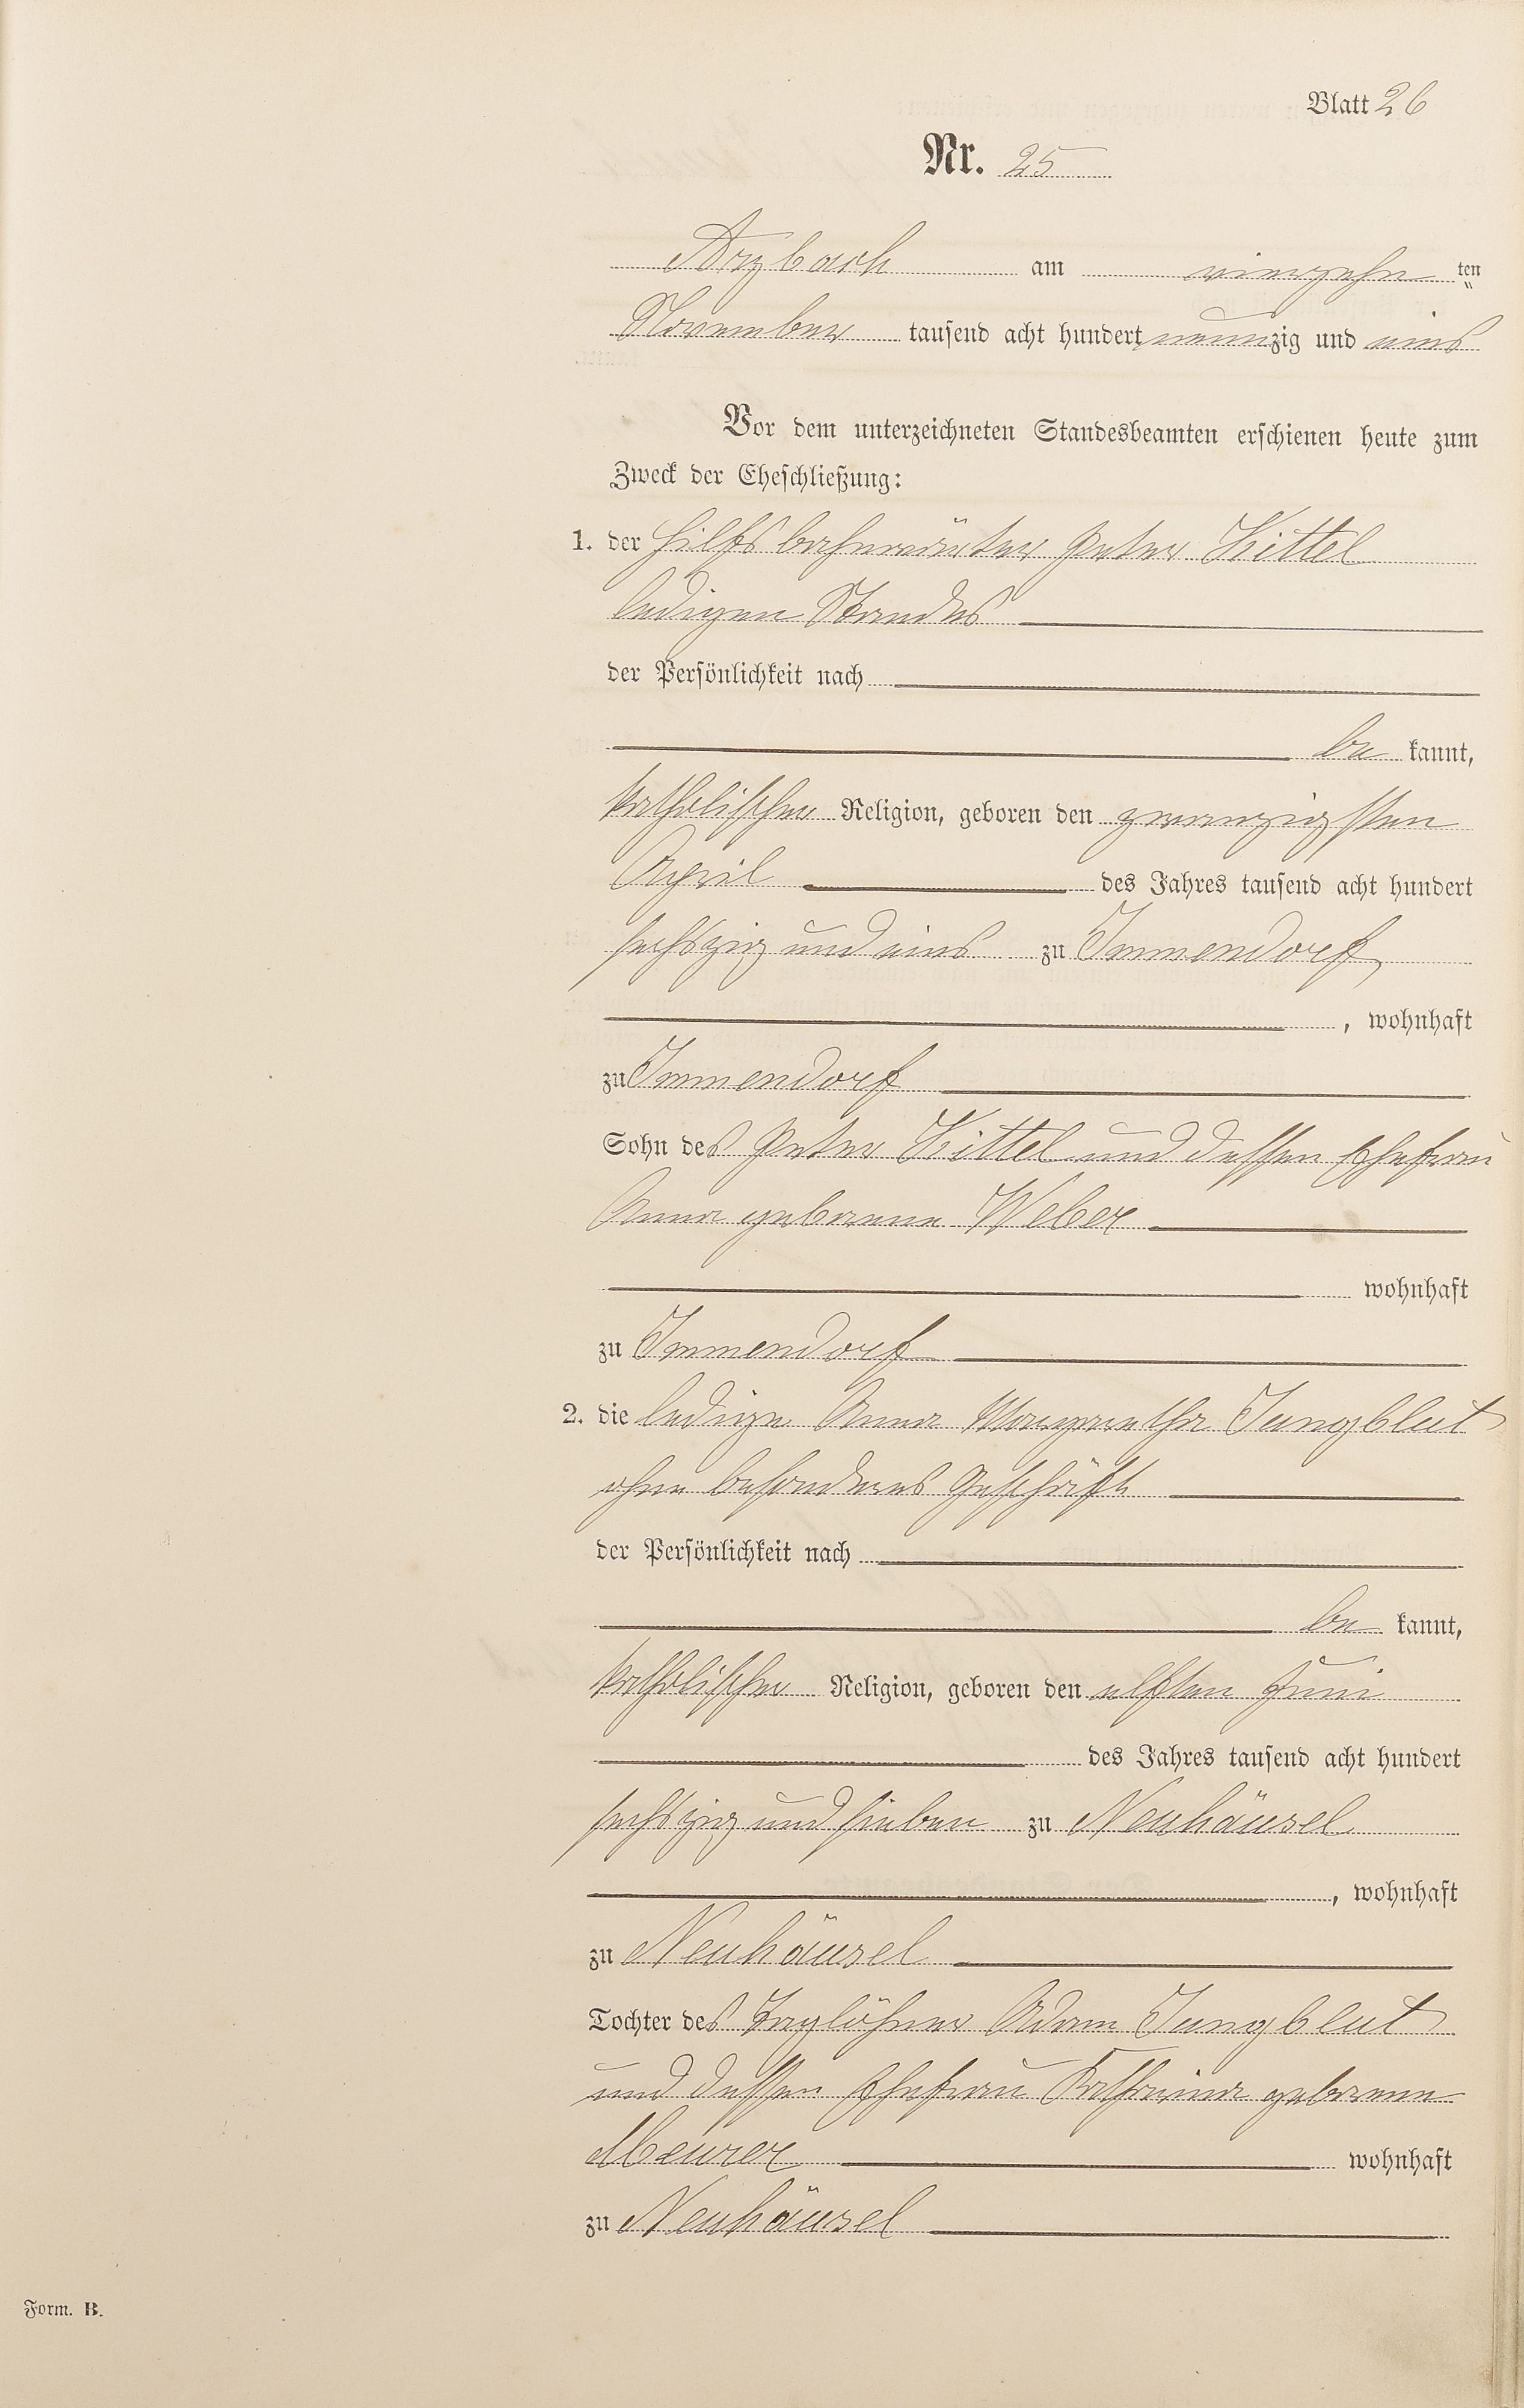 Blatt 26
Nr. 25
Arzbach am vierzehn ten
November tausend acht hundert neunzig und eins
Vor dem unterzeichneten Standesbeamten erschienen heute zum
Zweck der Eheschließung:
1. der Hilfsbahnwärter Peter Kittel
ledigen Standes
der Persönlichkeit nach
be kannt,
katholischer Religion, geboren den zwanzigsten
April des Jahres tausend acht hundert
sechszig und eins zu Immendorf
, wohnhaft
zu Immendorf
Sohn des Peter Kittel und dessen Ehefrau
Anna geborene Weber
wohnhaft
zu Immendorf
2. die ledige Anna Margaretha Jungblut
ohne besonderes Geschäft
der Persönlichkeit nach
be kannt,
katholischer Religion, geboren den elften Juni
des Jahres tausend acht hundert
sechszig und sieben zu Neuhäusel
, wohnhaft
zu Neuhäusel
Tochter des Taglöhner Adam Jungblut
und dessen Ehefrau Katharina geborene
Meurer wohnhaft
zu Neuhäusel
Form. B.